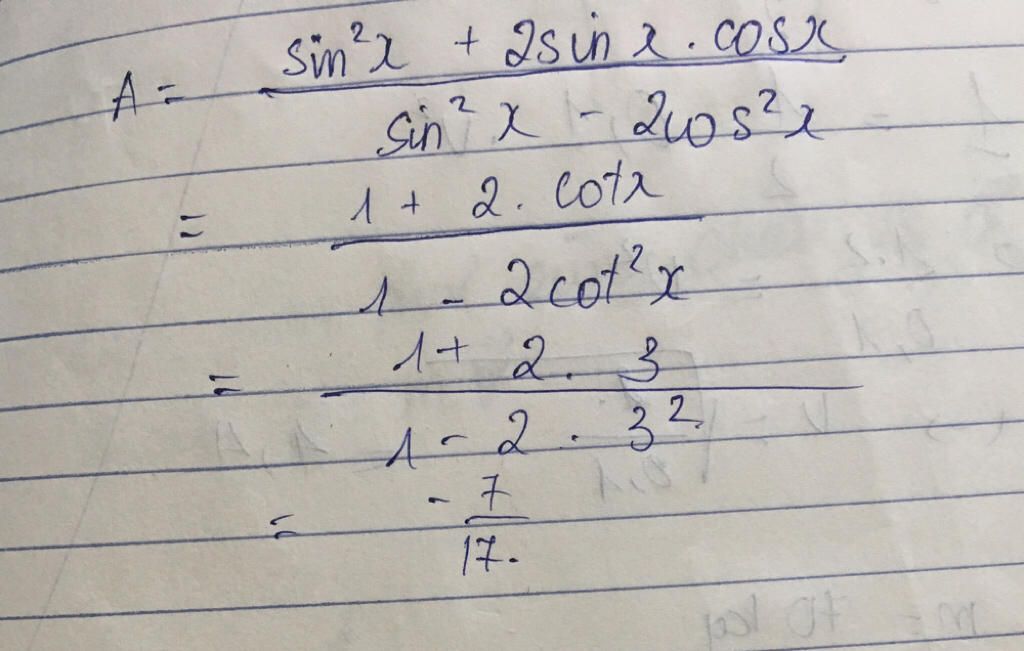 A = sin²x + 2sin x . cosx / sin²x - 2cos²x
= 1 + 2. cotx / 1 - 2cot²x
= 1 + 2. 3 / 1 - 2 . 3²
= -7 / 17.